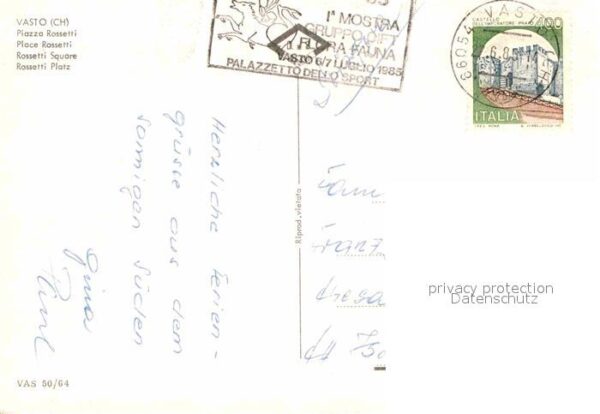 VASTO (CH)
Piazza Rossetti
Place Rossetti
Rossetti Square
Rossetti Platz
Iª MOSTRA
GRUPPO CIFT
FLORA FAUNA
VASTO 6/7 LUGLIO 1985
PALAZZETTO DELLO SPORT
66054 VASTO
CASTELLO
DELL'IMPERATORE PRATO
400
ITALIA
Herzliche Ferien-
grüsse aus dem
sonnigen Süden
Gina
Riprod. vietata
Fam
Franz
privacy protection
Datenschutz
VAS 50/64